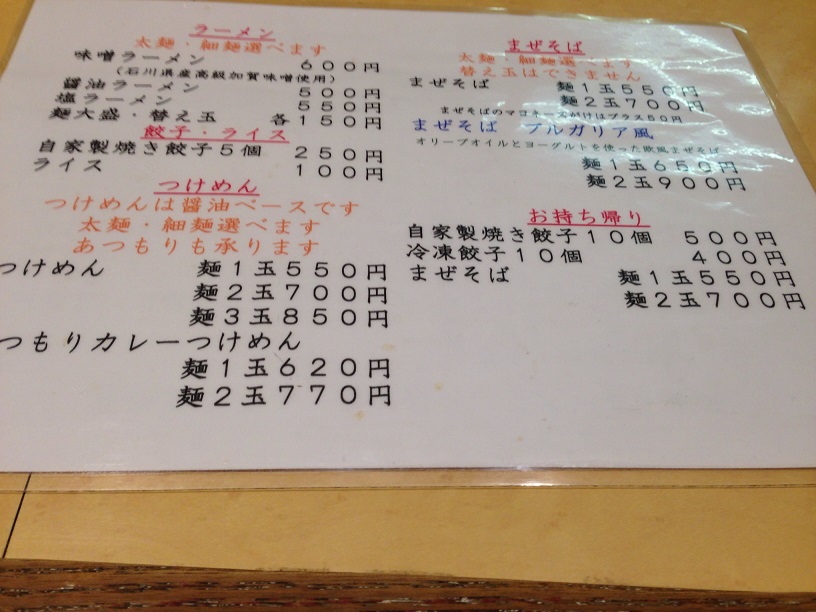 ラーメン
太麺・細麺選べます
味噌ラーメン 600円
(石川県産高級加賀味噌使用)
醤油ラーメン 500円
塩ラーメン 550円
麺大盛・替え玉 各150円
餃子・ライス
自家製焼き餃子5個 250円
ライス 100円
つけめん
つけめんは醤油ベースです
太麺・細麺選べます
あつもりも承ります
つけめん 麺1玉550円
麺2玉700円
麺3玉850円
つもりカレーつけめん
麺1玉620円
麺2玉770円
まぜそば
太麺・細麺選べます
替え玉はできません
まぜそば 麺1玉550円
麺2玉700円
まぜそばのマヨネーズがけはプラス50円
まぜそば ブルガリア風
オリーブオイルとヨーグルトを使った欧風まぜそば
麺1玉650円
麺2玉900円
お持ち帰り
自家製焼き餃子10個 500円
冷凍餃子10個 400円
まぜそば 麺1玉550円
麺2玉700円